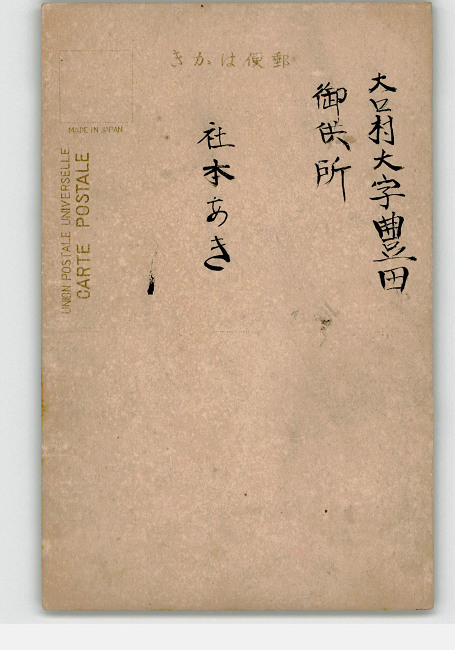 きかは便郵
大口村大字豊田
御供所
社本あき
MADE IN JAPAN
UNION POSTALE UNIVERSELLE
CARTE POSTALE